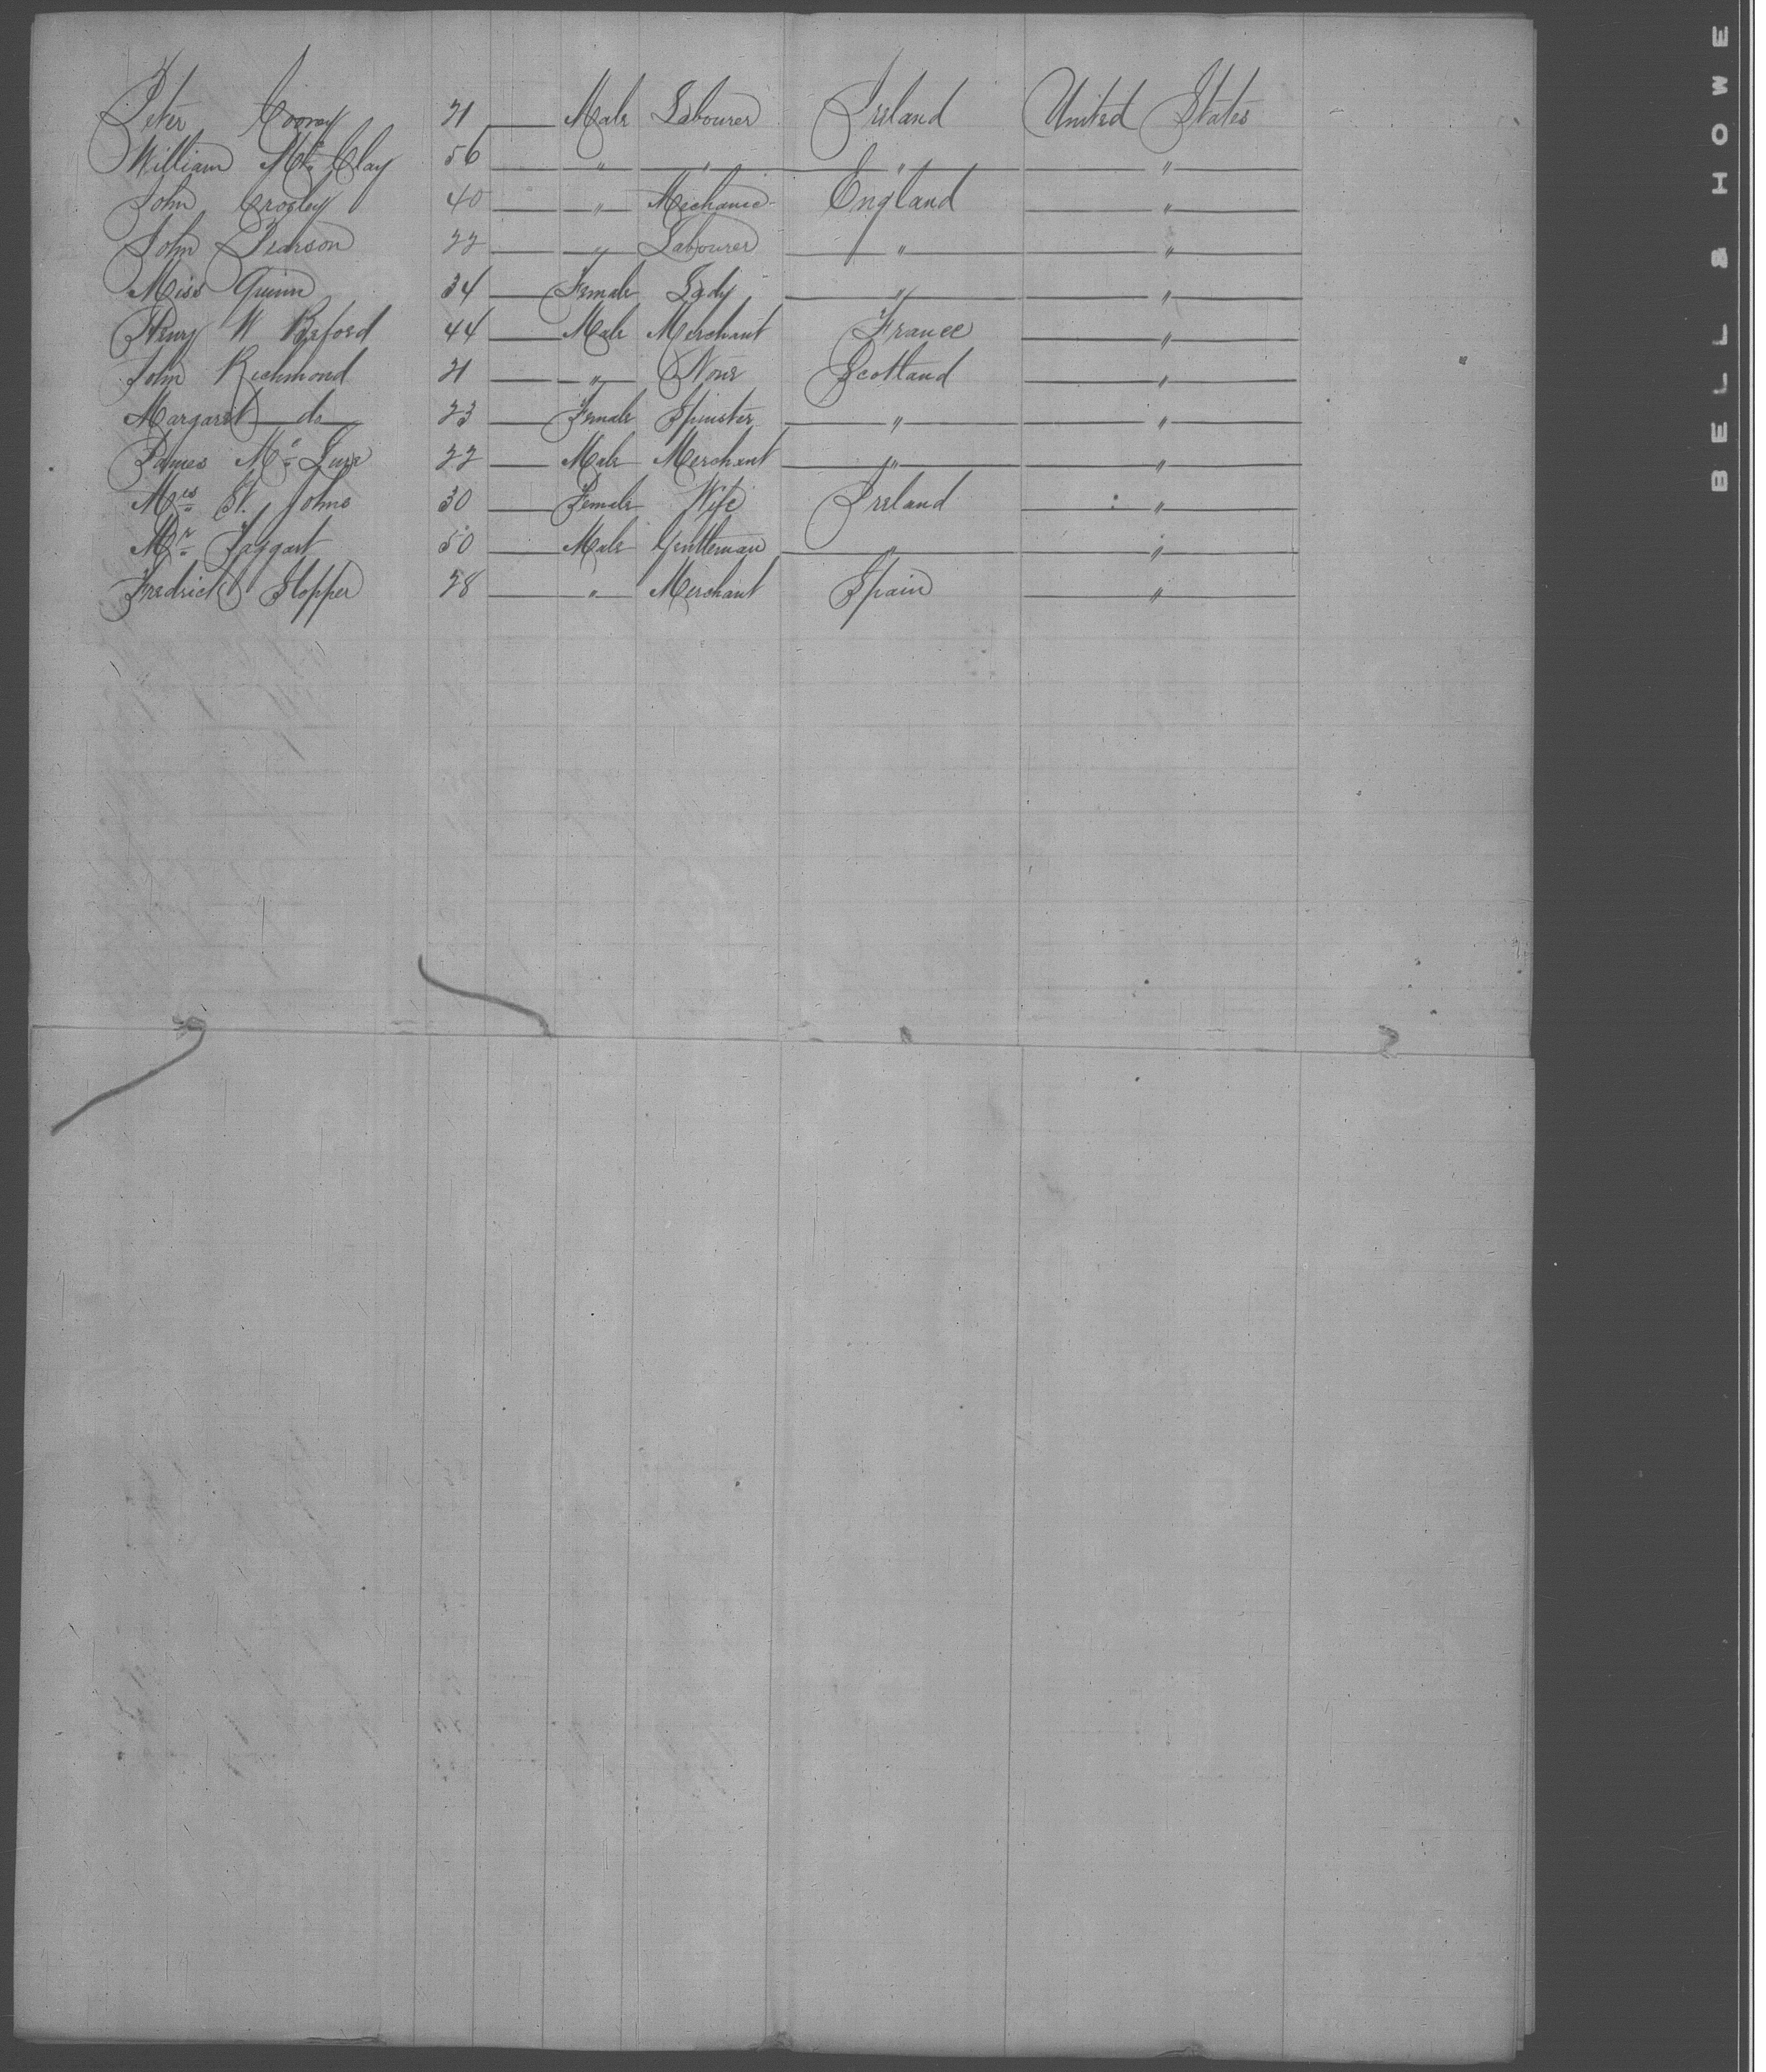 Peter Cooney 21 Male Labourer Ireland United States
William Mc Clay 56 " " " "
John Crosley 40 " Mechanic England "
John Pearson 22 " Labourer " "
Miss Quinn 34 Female Lady " "
Henry W 44 Male Merchant France "
John Richmond 21 " None Scotland "
Margaret do 23 Female Spinster " "
James Mc Lure 22 Male Merchant " "
Mrs St. Johns 30 Female Wife Ireland "
Mr Taggart 50 Male Gentleman " "
Fredrick Stopper 28 " Merchant Spain "
BELL & HOWE